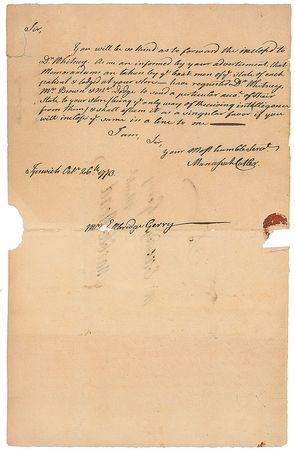 Sir,
You will be so kind as to forward the inclosed to
Dr. Whitney. As am informed by your advertisement, that
Memorandums are taken by ye boat men of ye State of each
patient & lodged at your Store— have requested Dr. Whitney,
Mr. Brown & Mr. Lodge to send a particular acct. of their
State to your Store (being ye only way of receiving intelligence
from them) & shall esteem it as a singular favor if you
will inclose ye same in a line to me
I am,
Sir,
Your Most humble Servt.
Manasseh Cutler.
Ipswich Octr. 26th. 1773.
Mr. Elbridge Gerry